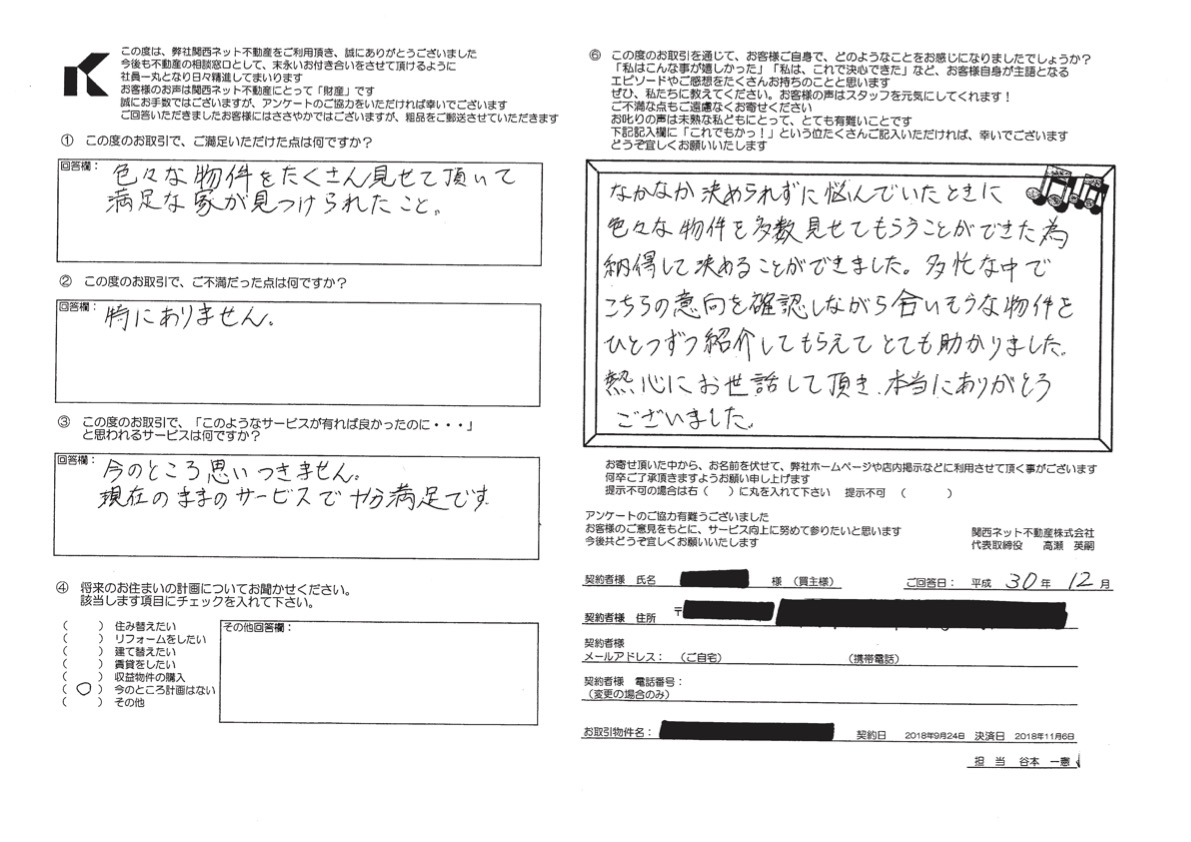 この度は、弊社関西ネット不動産をご利用頂き、誠にありがとうございました
今後も不動産の相談窓口として、末永いお付き合いをさせて頂けるように
社員一丸となり日々精進してまいります
お客様のお声は関西ネット不動産にとって「財産」です
誠にお手数ではございますが、アンケートのご協力をいただければ幸いでございます
ご回答いただきましたお客様にはささやかではございますが、粗品をご郵送させていただきます
① この度のお取引で、ご満足いただけた点は何ですか？
回答欄：
色々な物件をたくさん見せて頂いて
満足な家が見つけられたこと。
② この度のお取引で、ご不満だった点は何ですか？
回答欄：
特にありません。
③ この度のお取引で、「このようなサービスが有れば良かったのに・・・」
と思われるサービスは何ですか？
回答欄：
今のところ思いつきません。
現在のままのサービスで十分満足です
④ 将来のお住まいの計画についてお聞かせください。
該当します項目にチェックを入れて下さい。
（ ） 住み替えたい
（ ） リフォームをしたい
（ ） 建て替えたい
（ ） 賃貸をしたい
（ ） 収益物件の購入
（ ○ ） 今のところ計画はない
（ ） その他
その他回答欄：
⑥ この度のお取引を通じて、お客様ご自身で、どのようなことをお感じになりましたでしょうか？
「私はこんな事が嬉しかった」「私は、これで決心できた」など、お客様自身が主語となる
エピソードやご感想をたくさんお持ちのことと思います
ぜひ、私たちに教えてください。お客様の声はスタッフを元気にしてくれます！
ご不満な点もご遠慮なくお寄せください
お叱りの声は未熟な私どもにとって、とても有難いことです
下記記入欄に「これでもかっ！」という位たくさんご記入いただければ、幸いでございます
どうぞ宜しくお願いいたします
なかなか決められずに悩んでいたときに
色々な物件を多数見せてもらうことができた為
納得して決めることができました。多忙な中で
こちらの意向を確認しながら合いそうな物件を
ひとつずつ紹介してもらえてとても助かりました。
熱心にお世話して頂き、本当にありがとう
ございました。
お寄せ頂いた中から、お名前を伏せて、弊社ホームページや店内掲示などに利用させて頂く事がございます
何卒ご了承頂きますようお願い申し上げます
提示不可の場合は右（ ）に丸を入れて下さい 提示不可 （ ）
アンケートのご協力有難うございました
お客様のご意見をもとに、サービス向上に努めて参りたいと思います
今後共どうぞ宜しくお願いいたします
関西ネット不動産株式会社
代表取締役 高瀬 英嗣
契約者様 氏名 様 （買主様） ご回答日： 平成 30 年 12 月
契約者様 住所 〒
契約者様
メールアドレス： （ご自宅） （携帯電話）
契約者様 電話番号：
（変更の場合のみ）
お取引物件名： 契約日 2018年9月24日 決済日 2018年11月6日
担 当 谷本 一憲